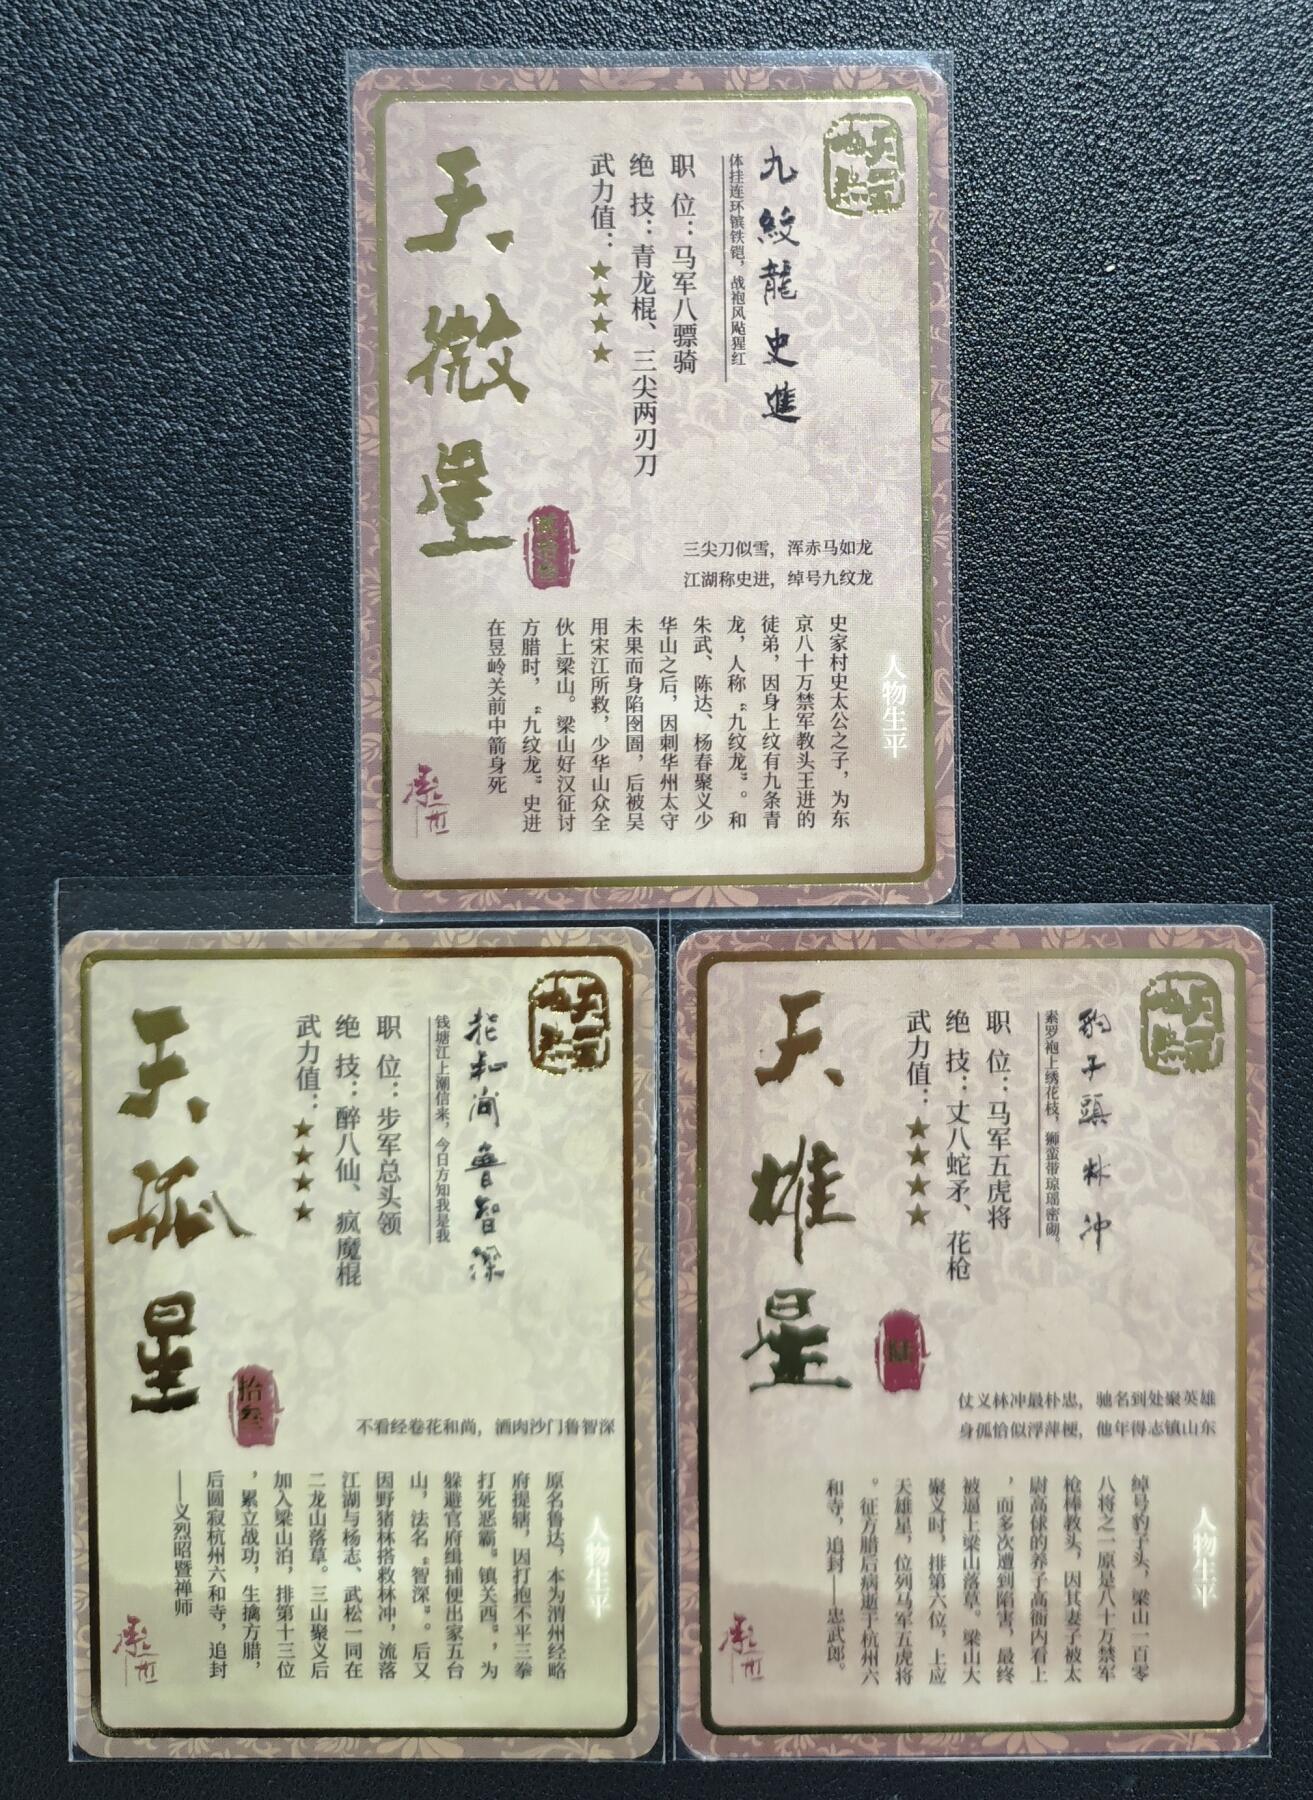 天罡
地煞
九紋龍 史進
体挂连环镔铁铠，战袍风飐猩红
职 位：马军八骠骑
绝 技：青龙棍、三尖两刃刀
武力值：★★★★
天微星
贰拾叁
三尖刀似雪，浑赤马如龙
江湖称史进，绰号九纹龙
人物生平
史家村史太公之子，为东
京八十万禁军教头王进的
徒弟，因身上纹有九条青
龙，人称“九纹龙”。和
朱武、陈达、杨春聚义少
华山之后，因刺华州太守
未果而身陷囹圄，后被吴
用宋江所救，少华山众全
伙上梁山。梁山好汉征讨
方腊时，“九纹龙”史进
在昱岭关前中箭身死
天罡
地煞
花和尚 鲁智深
钱塘江上潮信来，今日方知我是我
职 位：步军总头领
绝 技：醉八仙、疯魔棍
武力值：★★★★
天孤星
拾叁
不看经卷花和尚，酒肉沙门鲁智深
人物生平
原名鲁达，本为渭州经略
府提辖，因打抱不平三拳
打死恶霸“镇关西”，为
躲避官府缉捕便出家五台
山，法名“智深”。后又
因野猪林搭救林冲，流落
江湖与杨志、武松一同在
二龙山落草。三山聚义后
加入梁山泊，排第十三位
，累立战功，生擒方腊，
后圆寂杭州六和寺，追封
——义烈昭暨禅师
天罡
地煞
豹子頭 林冲
素罗袍上绣花枝，狮蛮带琼瑶密砌。
职 位：马军五虎将
绝 技：丈八蛇矛、花枪
武力值：★★★★
天雄星
陆
仗义林冲最朴忠，驰名到处聚英雄
身孤恰似浮萍梗，他年得志镇山东
人物生平
绰号豹子头，梁山一百零
八将之一原是八十万禁军
枪棒教头，因其妻子被太
尉高俅的养子高衙内看上
，而多次遭到陷害，最终
被逼上梁山落草。梁山大
聚义时，排第六位，上应
天雄星，位列马军五虎将
。征方腊后病逝于杭州六
和寺，追封——忠武郎。